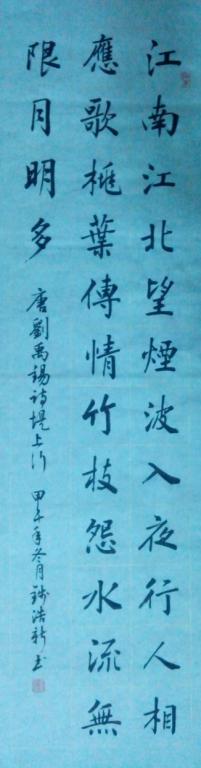 江南江北望煙波入夜行人相
應歌桃葉傳情竹枝怨水流無
限月明多
唐劉禹錫詩堤上行 甲午年冬月 浩新书